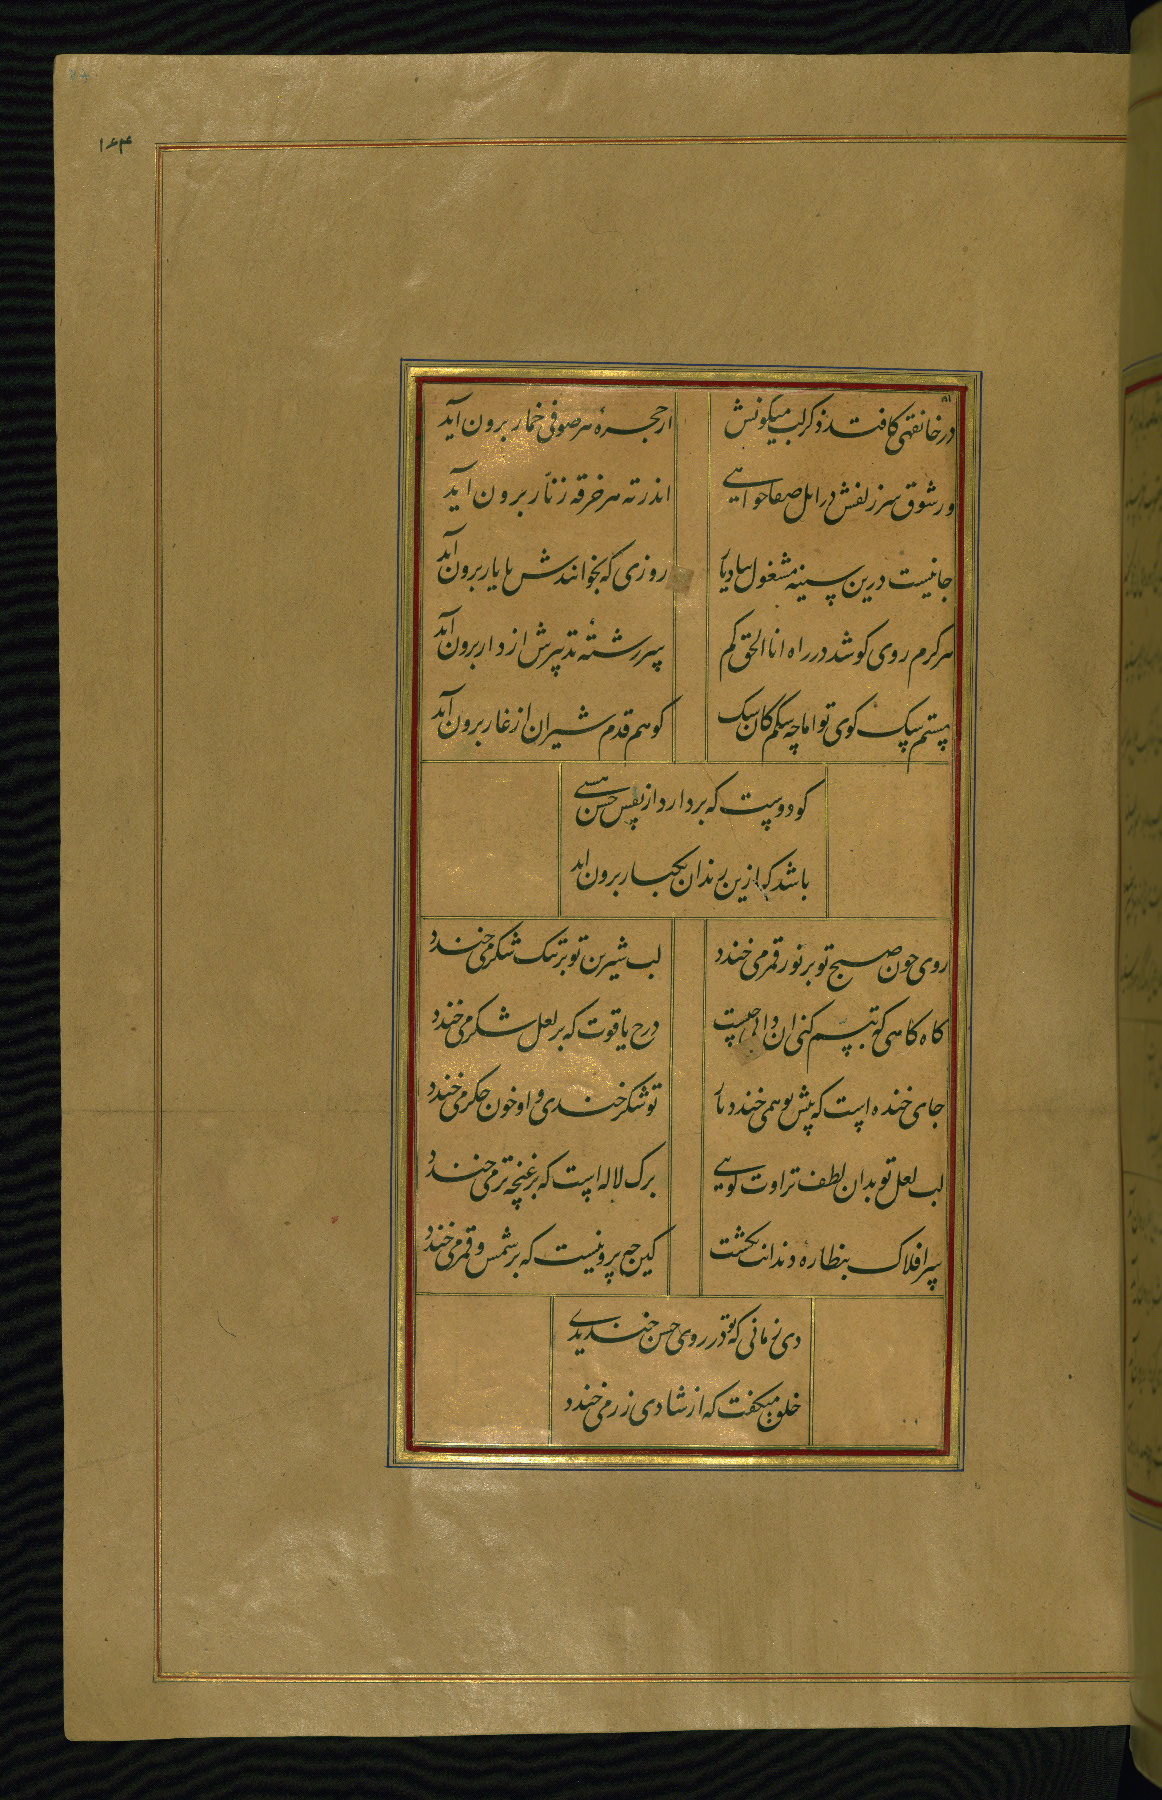 ۱۶۴
در خانقهی کافتد ذکر لب میکونش
از حجرهٔ هر صوفی خمار برون آید
ور شوق سر زلفش در اهل صفا خواهی
اندر ته هر خرقه زنار برون آید
جانیست درین سینه مشغول
روزی که بخوانندش با یار برون آید
هر کرم روی کو شد در راه انا الحق کم
سر رشتهٔ تدبیرش از دار برون آید
هستم سک کوی تو اما چه سکم کان سک
کو هم قدم شیران از غار برون آید
کو دوست که بردارد از نفس حسن هستی
باشد که ازین زندان یکبار برون اید
روی چون صبح تو بر نور قمر می خندد
لب شیرین تو بر تنک شکر می خندد
کاه کاهی که تبسم کنی ان دانی چیست
درج یاقوت که بر لعل شکر می خندد
جای خنده است که پیش تو همی خندد یار
تو شکر خندی و او خون جکر می خندد
لب لعل تو بدان لطف تراوت کوهی
برک لاله است که بر غنچه تر می خندد
سر افلاک بنظاره دندانت بکشت
کین چه پروینست که بر شمس و قمر می خندد
دی زمانی که تو در روی حسن خندیدی
خلق میکفت که از شادی زر می خندد